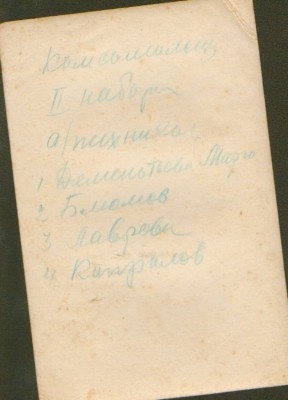 Комсомольцы
II набора.
а/техникол
1 Дементьева Маго
2 Блюмов
3 Лаврова
4 Капралов